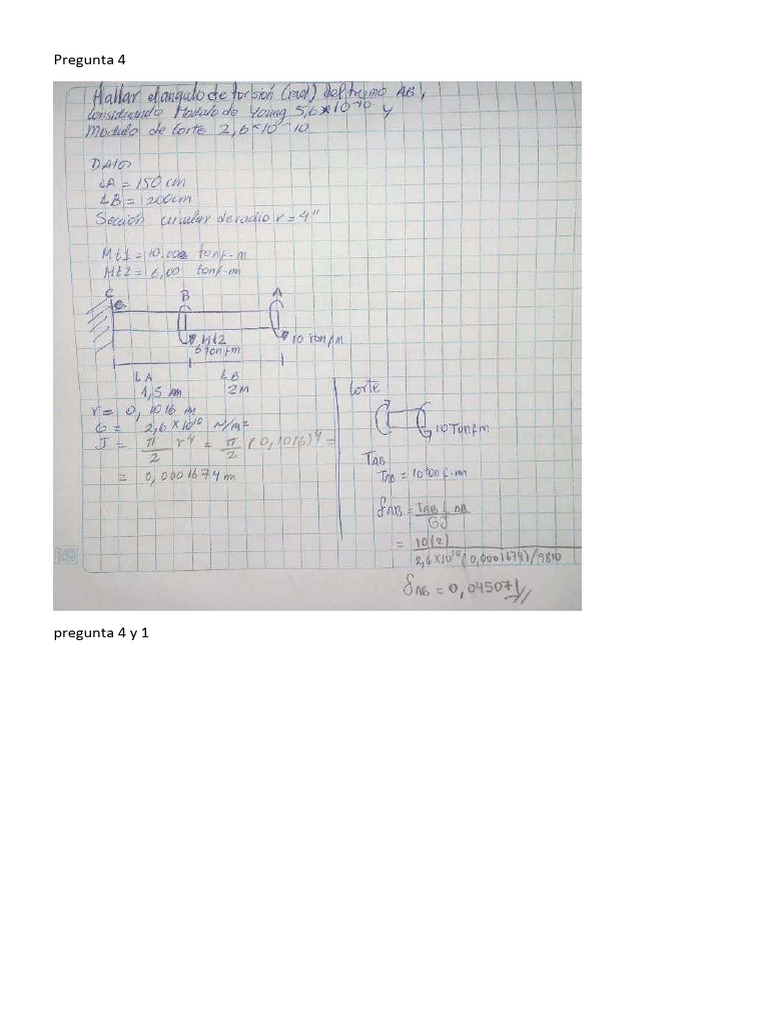 Pregunta 4
Hallar el angulo de torsión (rad) del tramo AB,
considerando Modulo de Young 5,6*10^-10 y
Modulo de Corte 2,6*10^-10
DATOS
LA = 150 cm
LB = 200cm
Sección circular de radio r = 4"
Mt1 = 10.00 tonf-m
Mt2 = 6,00 tonf-m
C B A
Mt2 10 tonf·m
6 tonf·m
LA LB
1,5 m 2m
r = 0,1016 m
G = 2,6×10^10 N/m²
J = π/2 r^4 = π/2 (0,1016)^4 =
= 0,0001674 m
Corte
10 Tonf·m
TAB
TAB = 10 tonf-m
δAB = TAB LAB / GJ
= 10(2) / 2,6×10^10 (0,0001674)/9810
δAB = 0,04507 //
pregunta 4 y 1